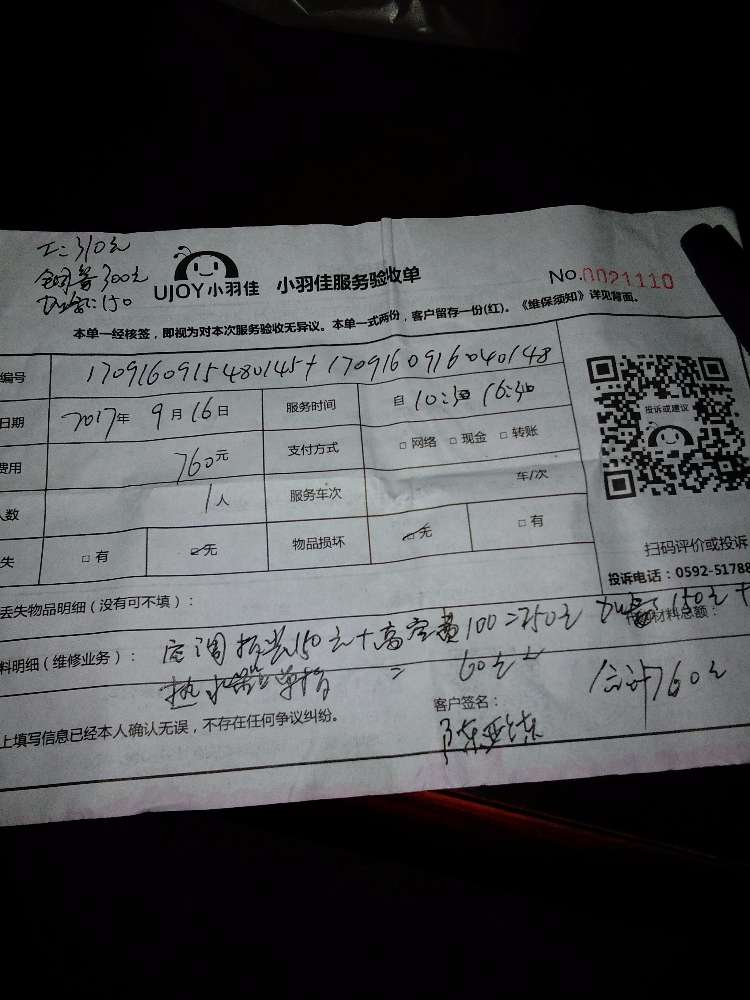 工:310元
300元
150
UJOY小羽佳 小羽佳服务验收单
NO.0021110
本单一经核签，即视为对本次服务验收无异议。本单一式两份，客户留存一份(红)。《维保须知》详见背面。
编号 1709160915480145+1709160916040148
日期 2017年 9月16日 服务时间 自 10:30 16:30
费用 760元 支付方式 □ 网络 □ 现金 □ 转账
人数 1人 服务车次 车/次
失 □ 有 ☑无 物品损坏 ☑无 □ 有
投诉或建议
扫码评价或投诉
投诉电话：0592-51788
丢失物品明细（没有可不填）：
料明细（维修业务）： 空调拆装150元+高空费100=250元 150元+
材料总额：
热水器 = 60元
合计760元
上填写信息已经本人确认无误，不存在任何争议纠纷。
客户签名：